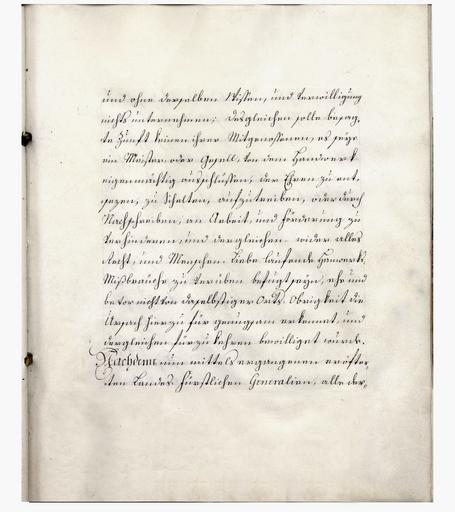 und ohne derselben Wissen, und Verwilligung
nichts unternehmen; desgleichen solle besag,
te Zunft keinen ihrer Mitgenossenen, es seye
ein Meister oder Gesell, von dem Handwerk
eigenmächtig ausschlüssen, der Ehren zu ent,
sezen, zu Schelten, aufzutreiben, oder durch
Nachschreiben, an Arbeit, und Förderung zu
verhinderen, und dergleichen wider alles
Recht, und Menschen Liebe laufende Hanwerks,
Mißbräuche zu verüben befugt seyn, ehe und
bevor nicht von daselbstiger Orts Obrigkeit die
Ursach hierzu für genugsam erkennet, und
dergleichen fürzukehren bewilliget wurde.
Nachdeme nun mittels ergangenen eröfte,
ten Landes Fürstlichen Generalien, alle der,